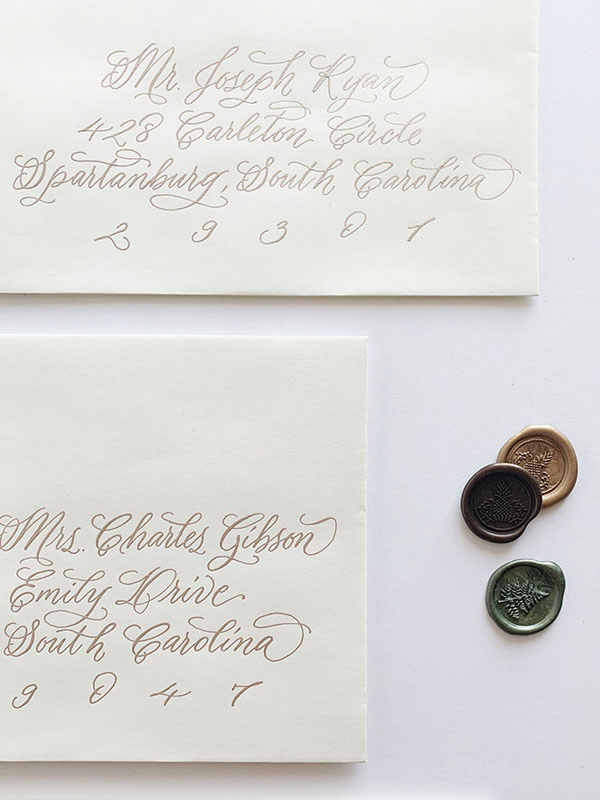 Mr. Joseph Ryan
428 Carleton Circle
Spartanburg, South Carolina
29301
Mrs. Charles Gibson
Emily Drive
South Carolina
9047